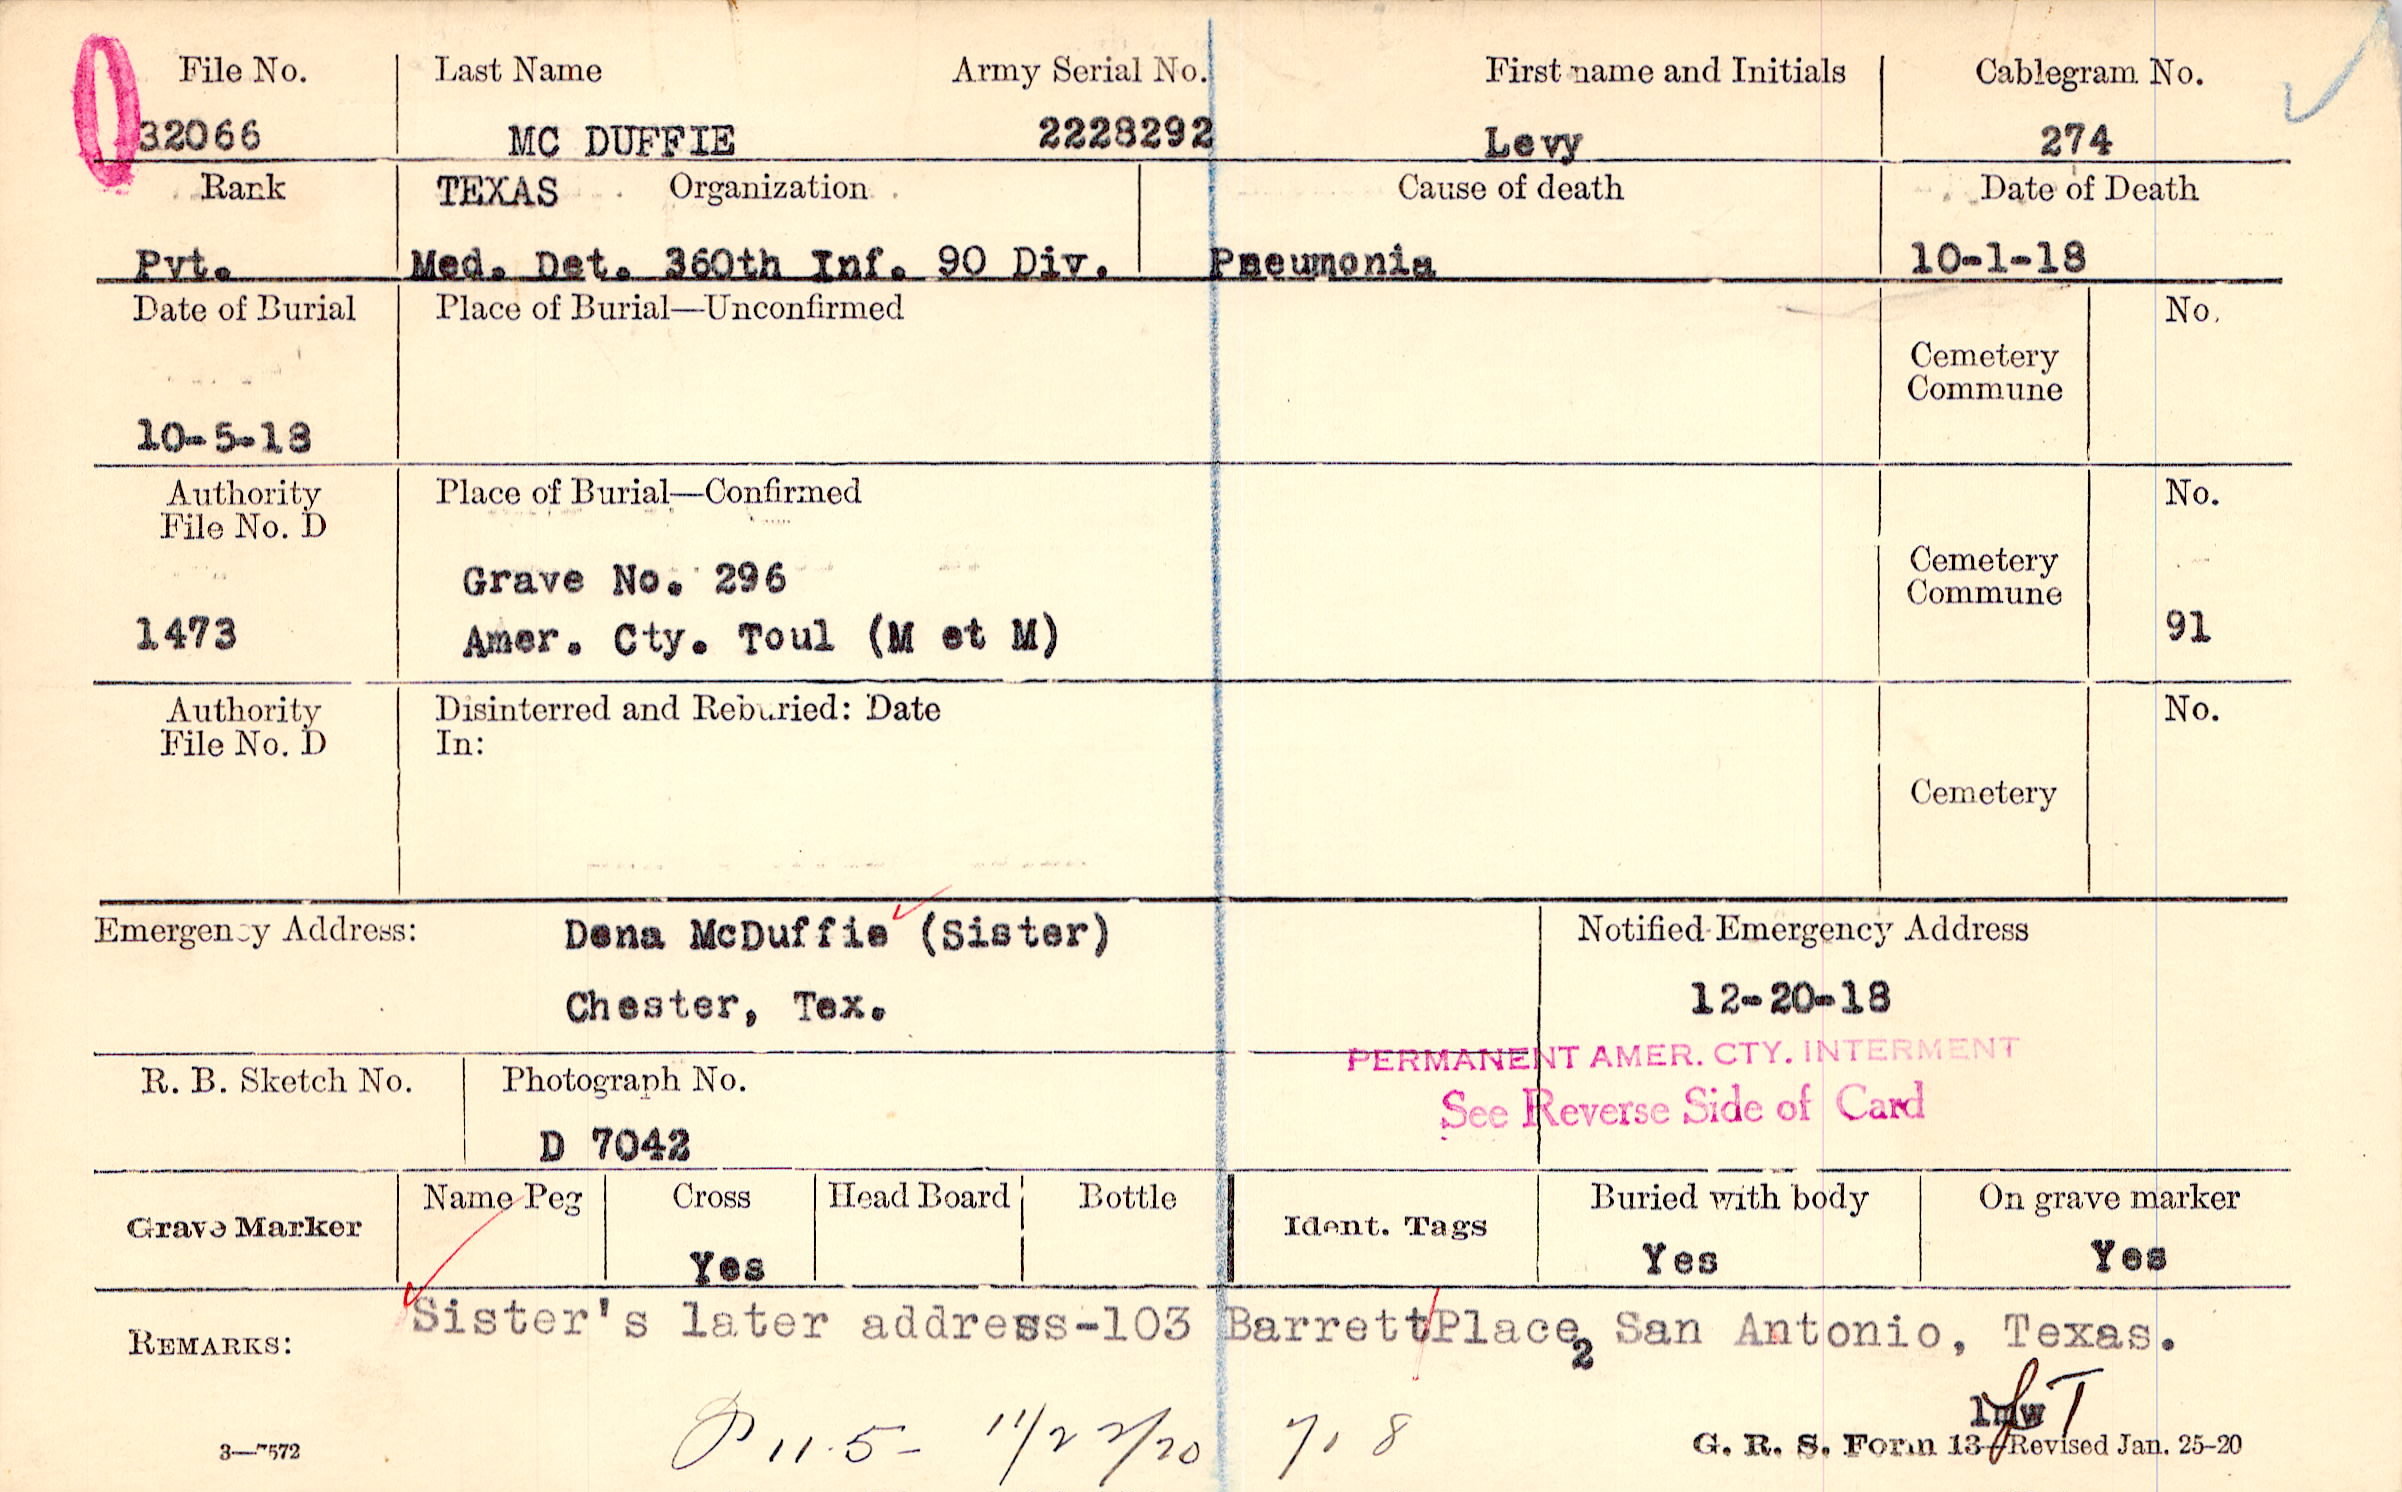 File No. Last Name Army Serial No. First name and Initials Cablegram No.
32066 MC DUFFIE 2228292 Levy 274
Rank TEXAS Organization Cause of death Date of Death
Pvt. Med. Det. 360th Inf. 90 Div. Pneumonia 10-1-18
Date of Burial Place of Burial—Unconfirmed No.
Cemetery
Commune
10-5-18
Authority Place of Burial—Confirmed No.
File No. D
Cemetery
Grave No. 296
Commune
1473 Amer. Cty. Toul (M et M) 91
Authority Disinterred and Reburied: Date No.
File No. D In:
Cemetery
Emergency Address: Dena McDuffie (Sister) Notified Emergency Address
Chester, Tex. 12-20-18
PERMANENT AMER. CTY. INTERMENT
R. B. Sketch No. Photograph No.
See Reverse Side of Card
D 7042
Grave Marker Name Peg Cross Head Board Bottle Ident. Tags Buried with body On grave marker
Yes Yes Yes
REMARKS: Sister's later address-103 Barrett Place, San Antonio, Texas.
2
11.5- 11/22/20 718
3—7572 G. R. S. Form 13—Revised Jan. 25-20